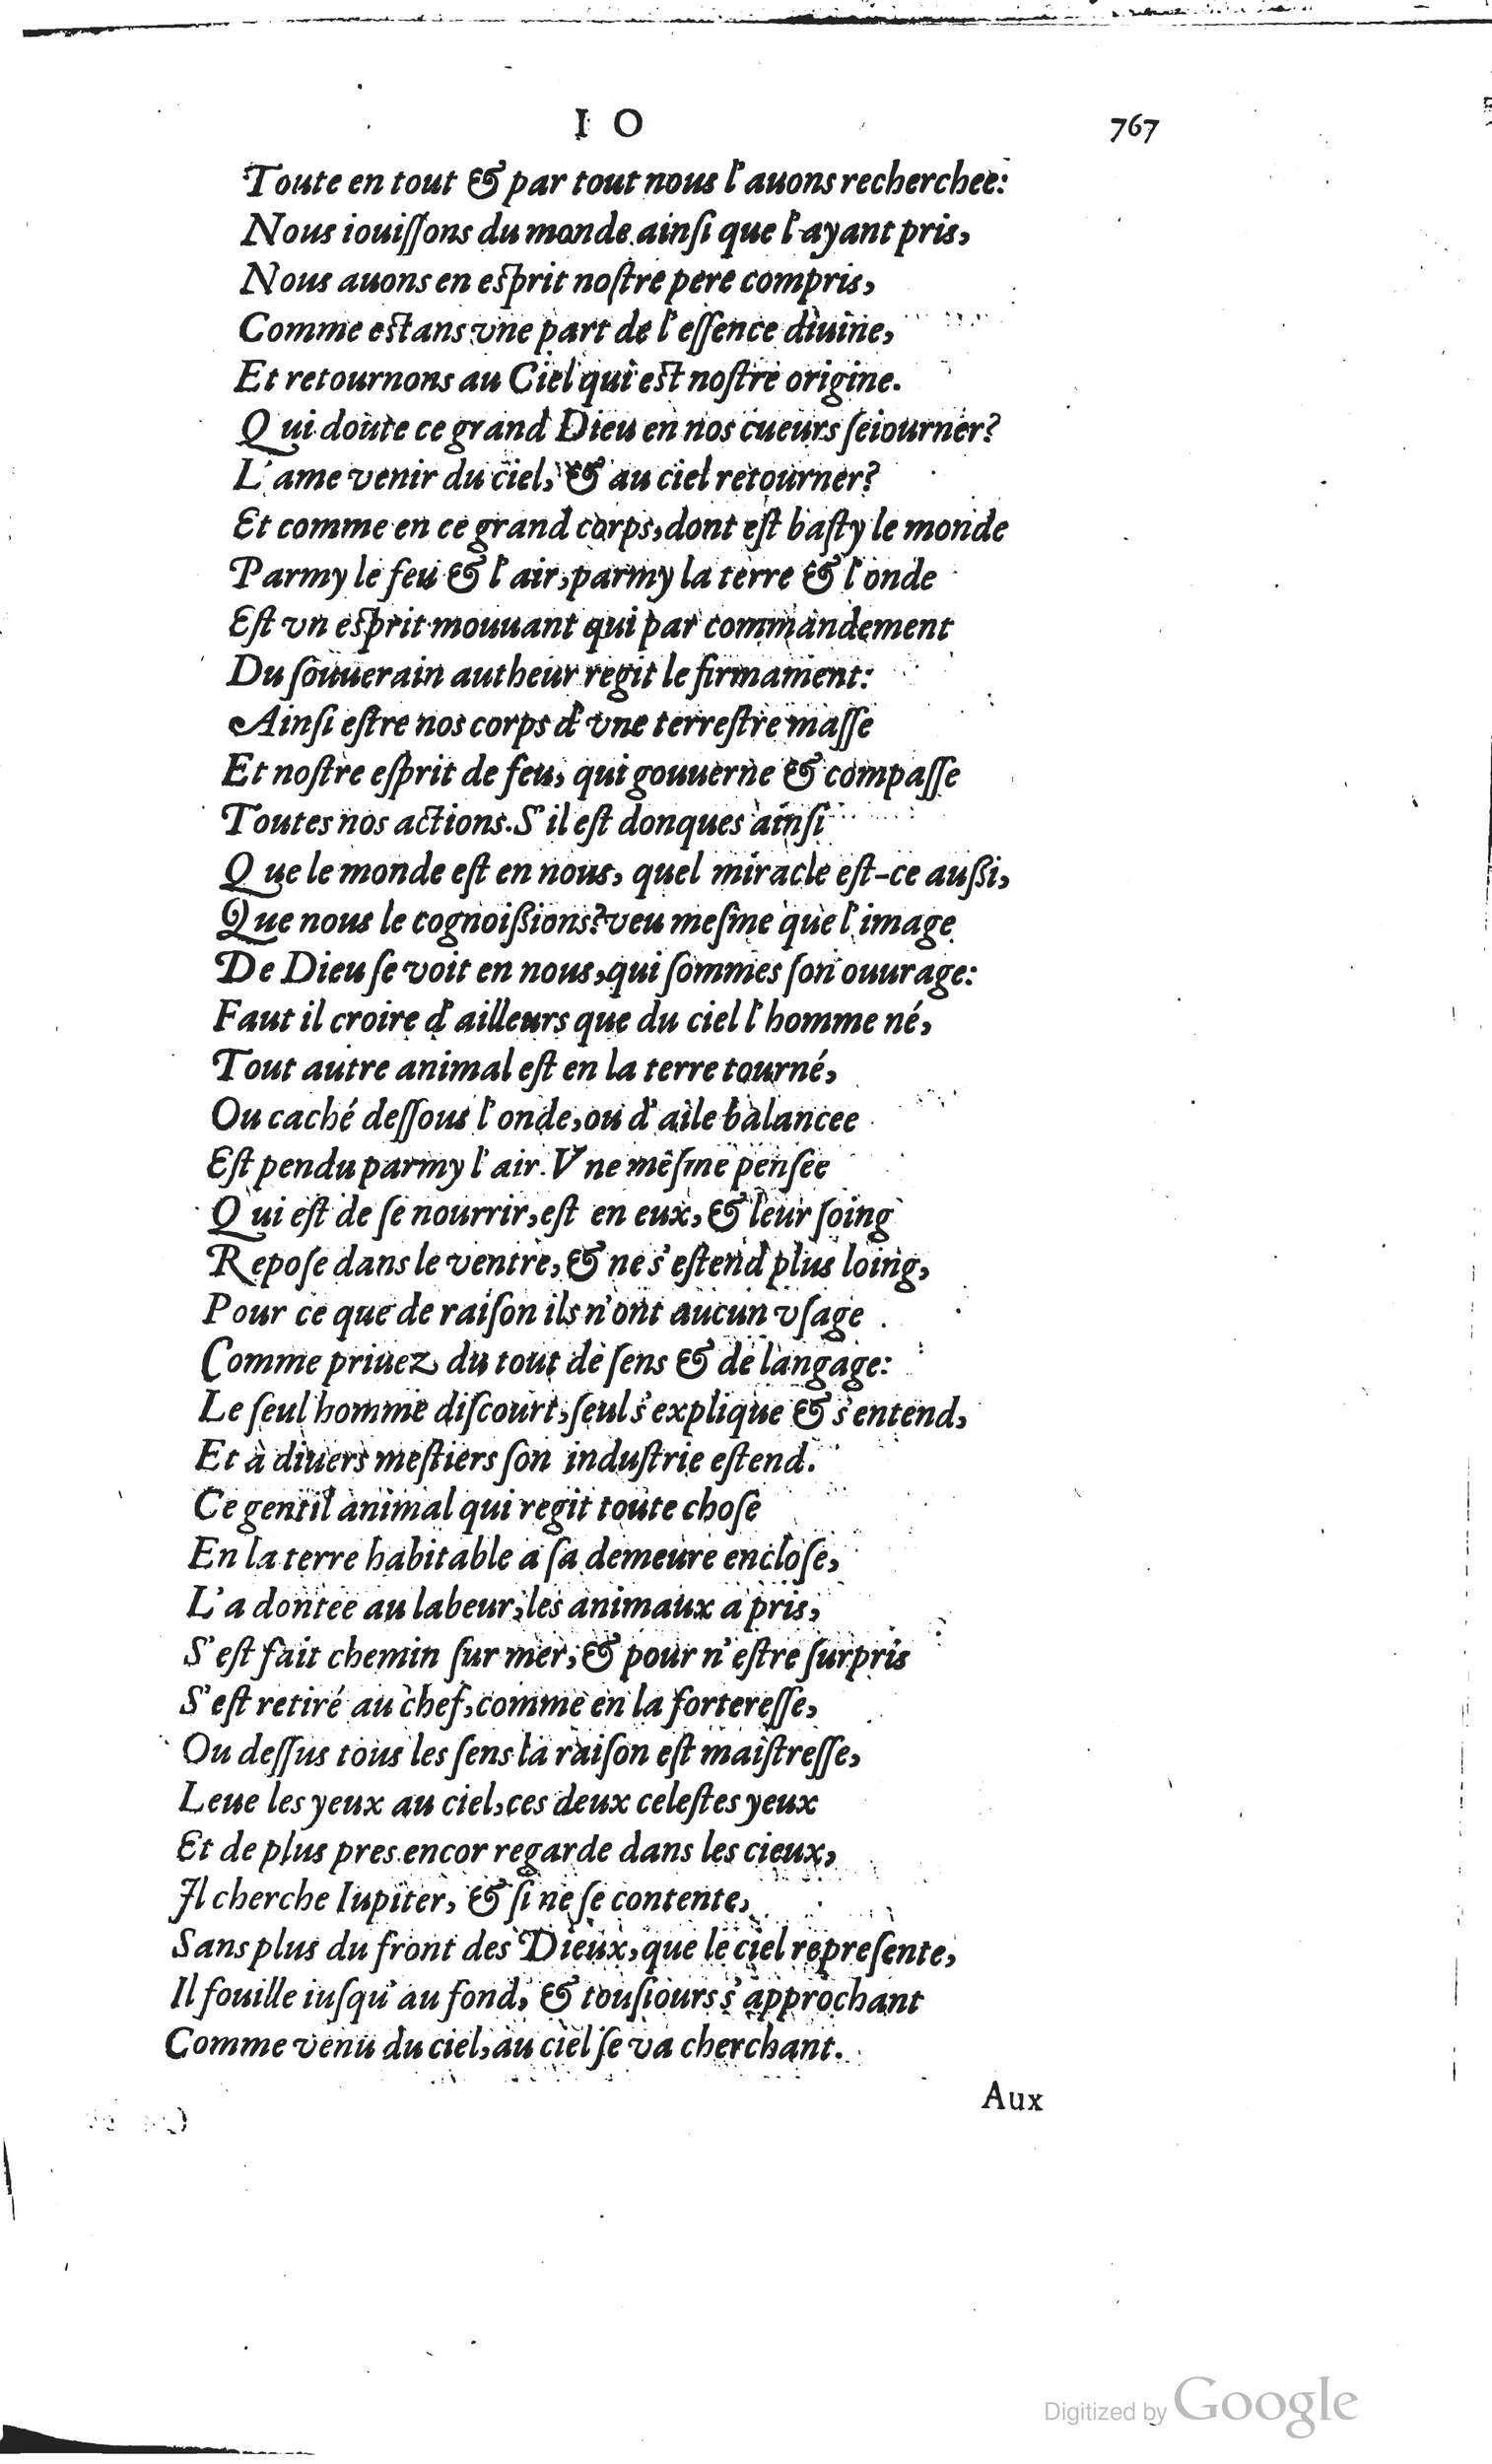 I O 767
Toute en tout & par tout nous l'auons recherchee:
Nous iouiſſons du monde ainſi que l'ayant pris,
Nous auons en eſprit noſtre pere compris,
Comme eſtans vne part de l'eſſence diuine,
Et retournons au Ciel qui eſt noſtre origine.
Qui doute ce grand Dieu en nos cueurs ſeiourner?
L'ame venir du ciel, & au ciel retourner?
Et comme en ce grand corps, dont eſt baſty le monde
Parmy le feu & l'air, parmy la terre & l'onde
Eſt vn eſprit mouuant qui par commandement
Du ſouuerain autheur regit le firmament:
Ainſi eſtre nos corps d'vne terreſtre maſſe
Et noſtre eſprit de feu, qui gouuerne & compaſſe
Toutes nos actions. S'il eſt donques ainſi
Que le monde eſt en nous, quel miracle eſt-ce auſſi,
Que nous le cognoiſſions? veu meſme que l'image
De Dieu ſe voit en nous, qui ſommes ſon ouurage:
Faut il croire d'ailleurs que du ciel l'homme né,
Tout autre animal eſt en la terre tourné,
Ou caché deſſous l'onde, ou d'aile balancee
Eſt pendu parmy l'air. Vne meſme penſee
Qui eſt de ſe nourrir, eſt en eux, & leur ſoing
Repoſe dans le ventre, & ne s'eſtend plus loing,
Pour ce que de raiſon ils n'ont aucun vſage
Comme priuez du tout de ſens & de langage:
Le ſeul homme diſcourt, ſeul s'explique & s'entend,
Et à diuers meſtiers ſon induſtrie eſtend.
Ce gentil animal qui regit toute choſe
En la terre habitable a ſa demeure encloſe,
L'a dontee au labeur, les animaux a pris,
S'eſt fait chemin ſur mer, & pour n'eſtre ſurpris
S'eſt retiré au chef, comme en la fortereſſe,
Ou deſſus tous les ſens la raiſon eſt maiſtreſſe,
Leue les yeux au ciel, ces deux celeſtes yeux
Et de plus pres encor regarde dans les cieux,
Il cherche Iupiter, & ſi ne ſe contente,
Sans plus du front des Dieux, que le ciel repreſente,
Il fouille iuſqu'au fond, & touſiours s'approchant
Comme venu du ciel, au ciel ſe va cherchant.
Aux
Digitized by Google